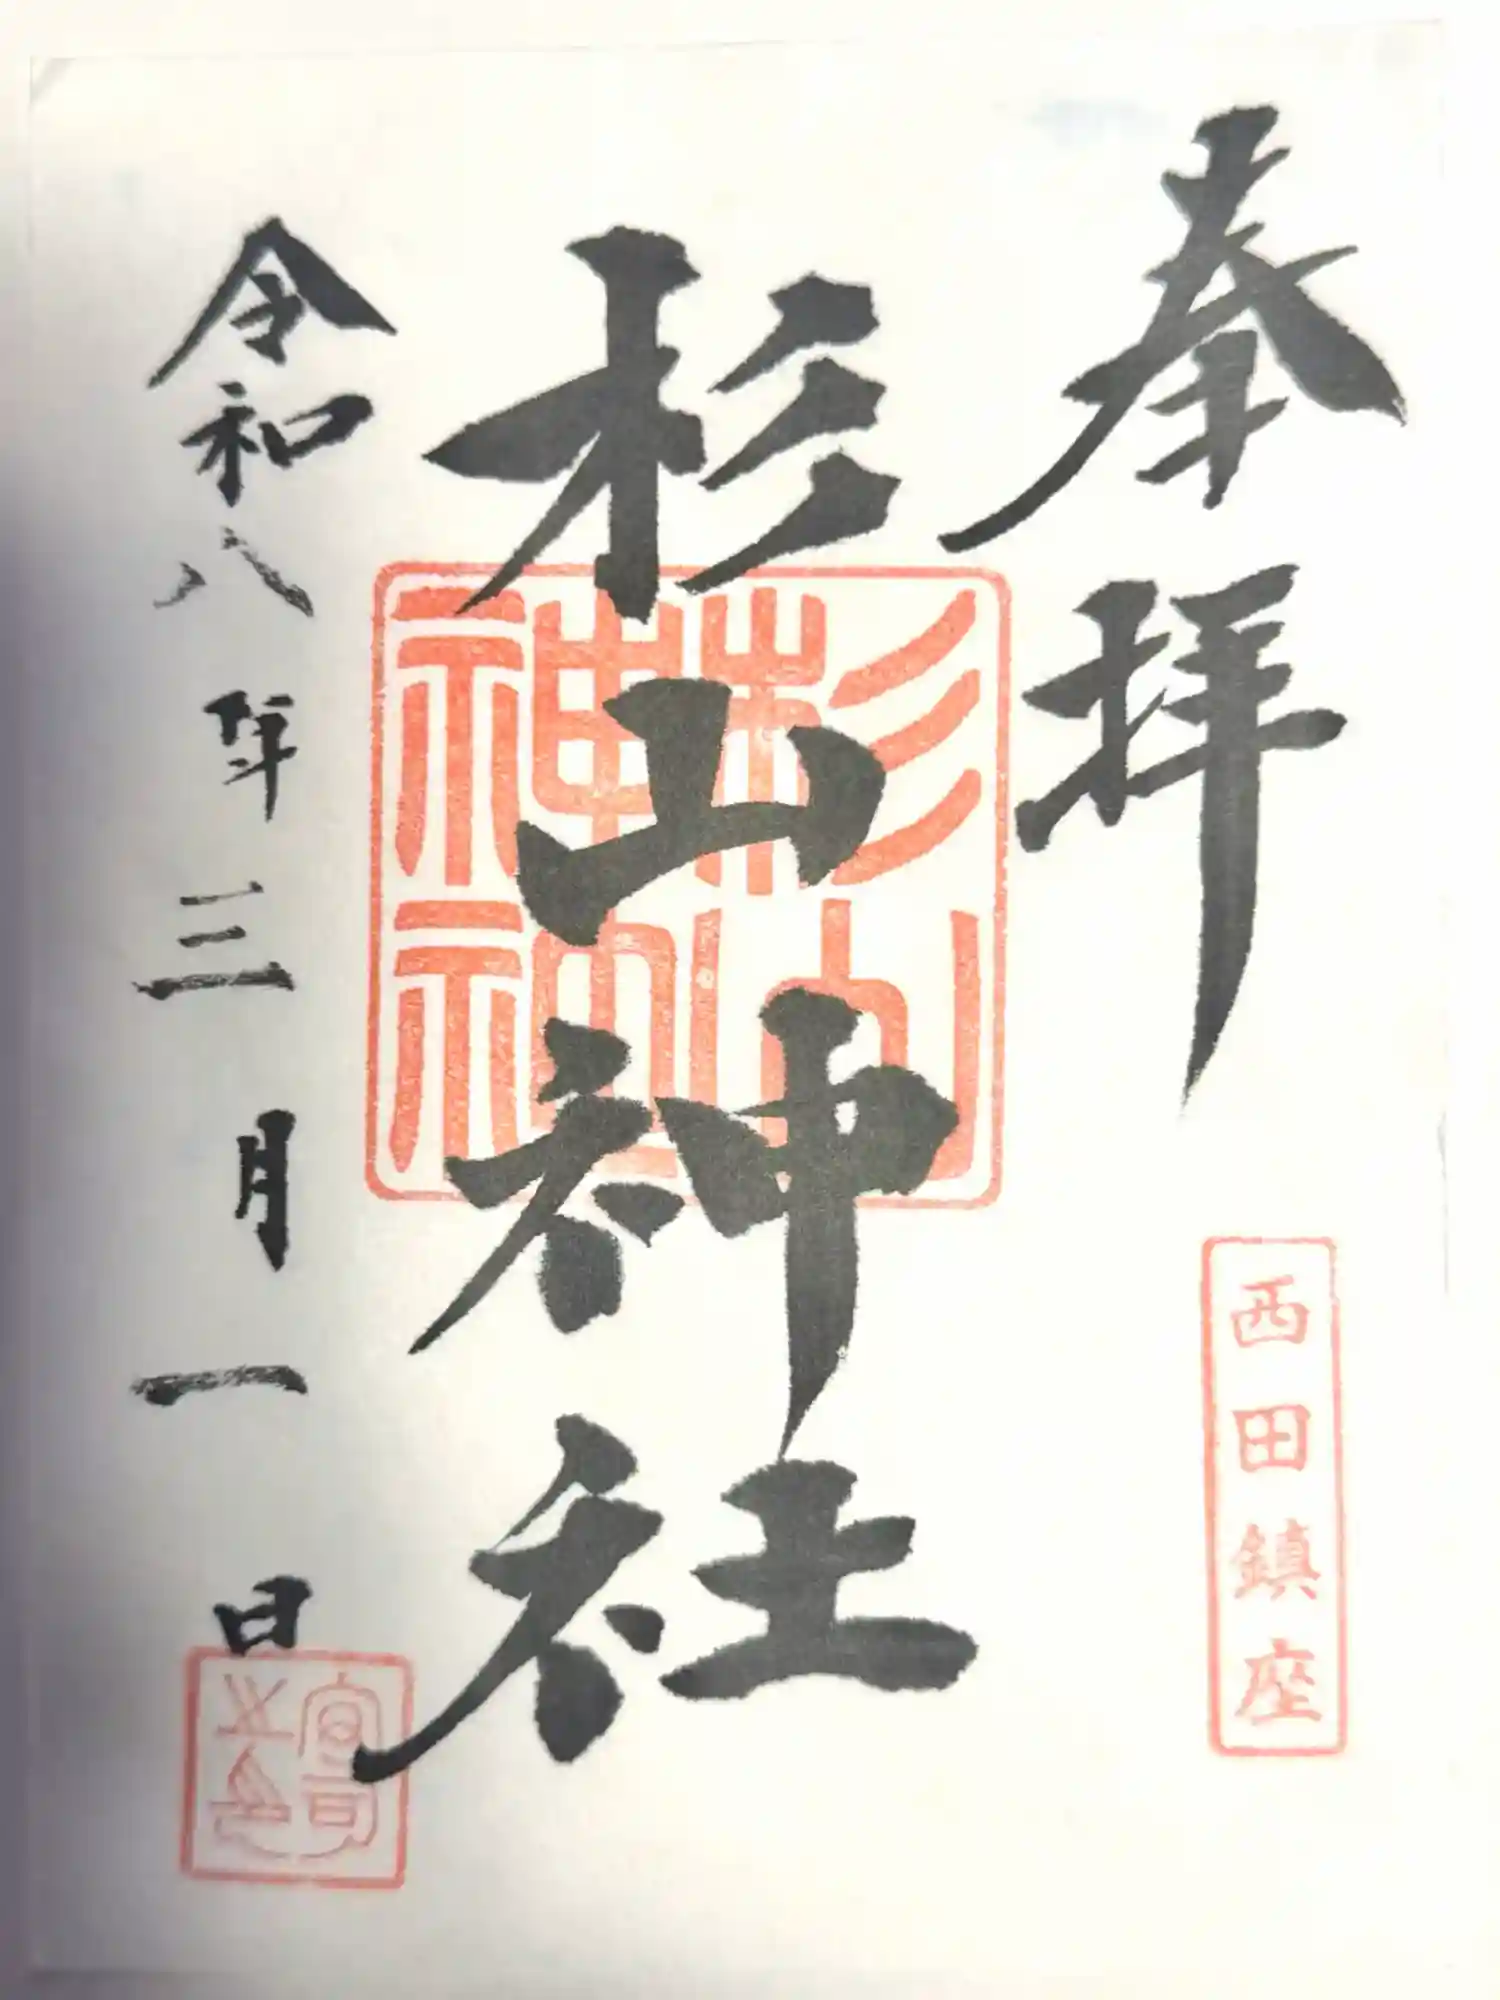 奉拝
西田鎮座
杉山神社
杉山
神社
令和八年三月一日
宮司之印